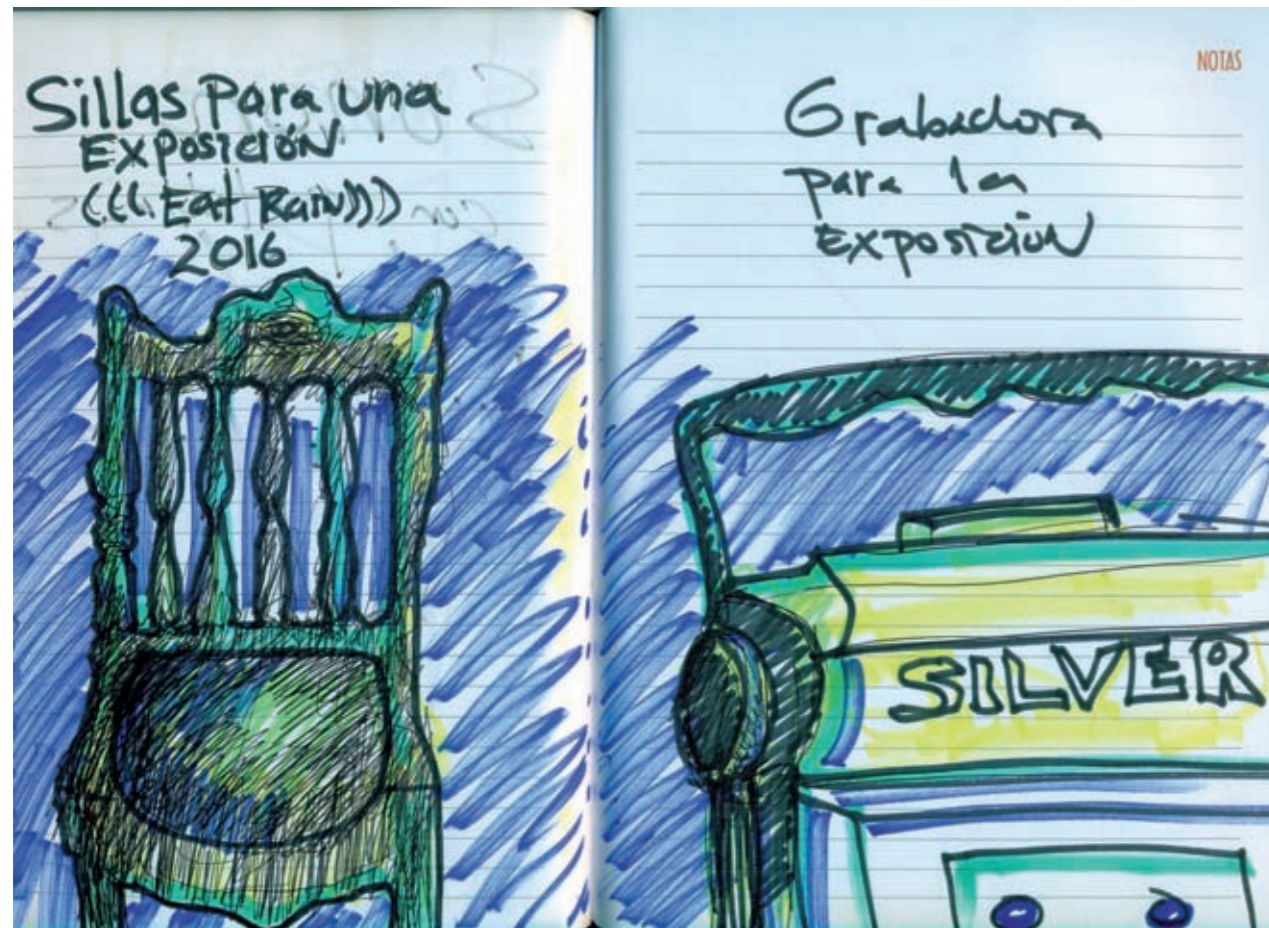 Sillas Para una
EXPosición
(((Eat Rain)))
2016
NOTAS
Grabadora
para la
EXposición
SILVER